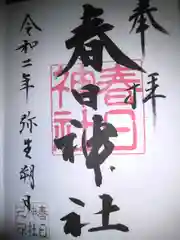 奉拝
春日神社
春日
神社
令和二年 弥生朔日